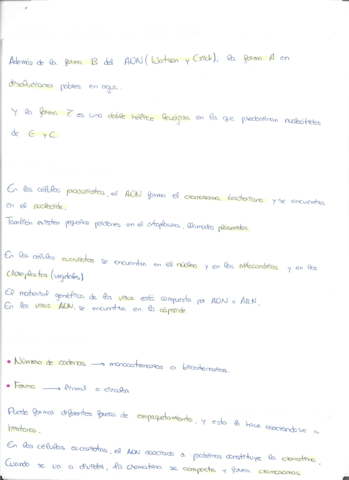 Además de la forma B del ADN (Watson y Crick), la forma A en
disoluciones pobres en agua.
Y la forma Z es una doble hélice levógira en la que predominan nucleótidos
de G y C.
En las células procariotas, el ADN forma el cromosoma bacteriano y se encuentra
en el nucleoide.
También existen pequeñas porciones en el citoplasma, llamadas plásmidos.
En las células eucariotas se encuentra en el núcleo y en las mitocondrias y en los
cloroplastos (vegetales)
El material genético de los virus está compuesto por ADN o ARN.
En los virus ADN, se encuentra en la cápside
• Número de cadenas → monocatenarios o bicatenarios.
• Forma → lineal o circular
Puede formar diferentes formas de empaquetamiento, y esto lo hace asociándose a
histonas.
En las células eucariotas, el ADN asociado a proteínas constituye la cromatina.
Cuando se va a dividir, la cromatina se compacta y forma cromosomas